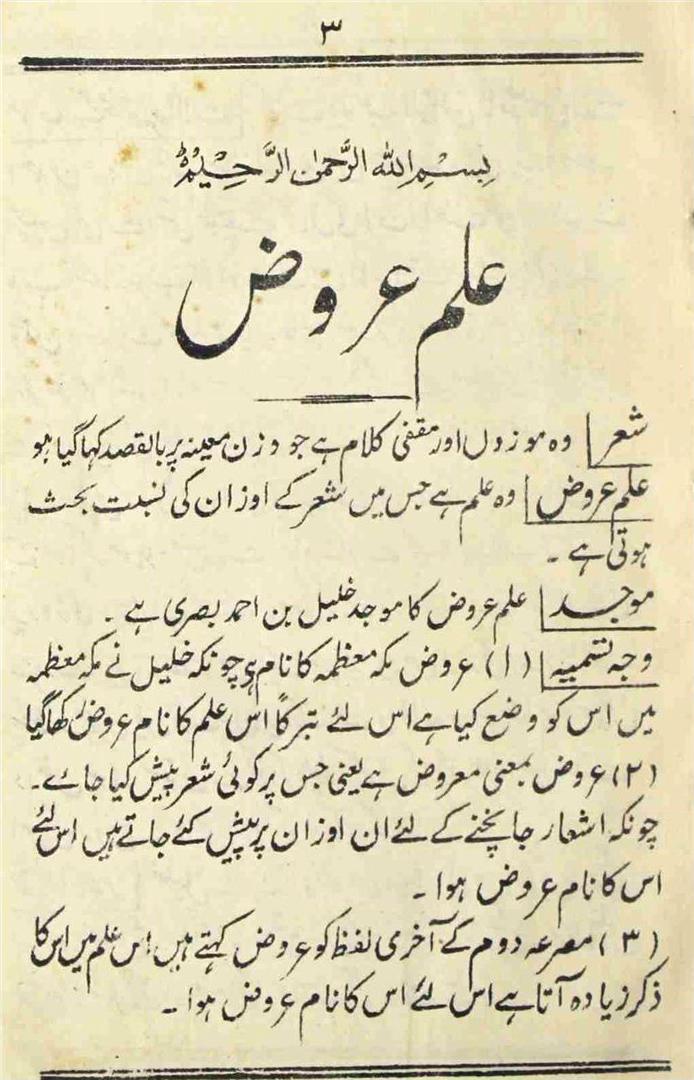 ۳
بِسْمِ اللهِ الرَّحْمٰنِ الرَّحِیْمِ
علم عروض
شعر وہ موزوں اور مقفی کلام ہے جو وزن معینہ پر بالقصد کہا گیا ہو
علم عروض وہ علم ہے جس میں شعر کے اوزان کی نسبت بحث
ہوتی ہے ۔
موجد علم عروض کا موجد خلیل بن احمد بصری ہے ۔
وجہ تسمیہ (۱) عروض مکہ معظمہ کا نام ہے چونکہ خلیل نے مکہ معظمہ
میں اس کو وضع کیا ہے اس لئے تبرکاً اس علم کا نام عروض رکھا گیا
(۲) عروض بمعنی معروض ہے یعنی جس پر کوئی شعر پیش کیا جائے ۔
چونکہ اشعار جانچنے کے لئے ان اوزان پر پیش کئے جاتے ہیں اس لئے
اس کا نام عروض ہوا ۔
(۳) مصرعہ دوم کے آخری لفظ کو عروض کہتے ہیں اس علم میں اس کا
ذکر زیادہ آتا ہے اس لئے اس کا نام عروض ہوا ۔